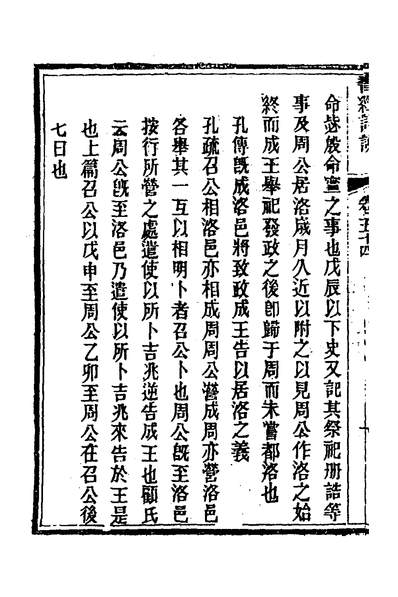 書經詮義
卷五十四
命毖殷命寧之事也戊辰以下史又記其祭祀册誥等
事及周公居洛歲月久近以附之以見周公作洛之始
終而成王舉祀發政之後卽歸于周而未嘗都洛也
孔傳旣成洛邑將致政成王告以居洛之義
孔疏召公相洛邑亦相成周周公營成周亦營洛邑
各舉其一互以相明卜者召公卜也周公旣至洛邑
按行所營之處遣使以所卜吉兆逆告成王也顧氏
云周公旣至洛邑乃遣使以所卜吉兆來告於王是
也上篇召公以戊申至周公乙卯至周公在召公後
七日也